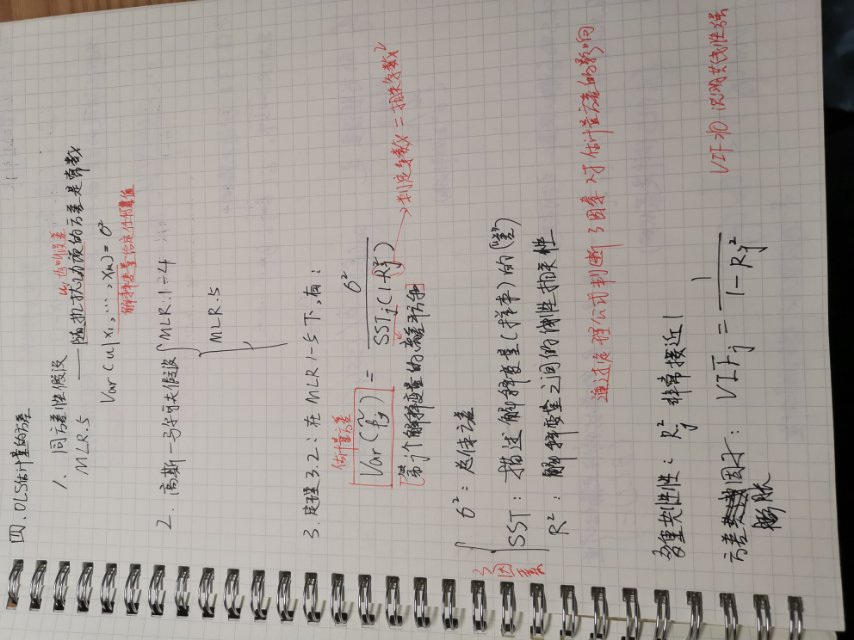 四、OLS估计量的方差
1. 同方差性假设
MLR.5 —— 随机扰动项的方差是常数
Var(u|x₁,…,xₙ)=σ²
解释变量给定任何值
2. 高斯-马尔可夫假设 { MLR.1~4
MLR.5
3. 定理3.2:在MLR1-5下,有:
估计量方差
Var(β̂ⱼ) = σ² / SSTⱼ(1-Rⱼ²)
→判定系数 = 相关系数²
第j个解释变量的离差平方和
3因素
σ²:总体方差
SST:描述解释变量(样本)的
R²:解释变量之间的线性相关性
通过定理公式判断3因素对于估计量方差的影响
多重共线性:Rⱼ² 非常接近1
方差膨胀因子:VIFⱼ = 1 / 1-Rⱼ²
VIF>10 说明共线性强